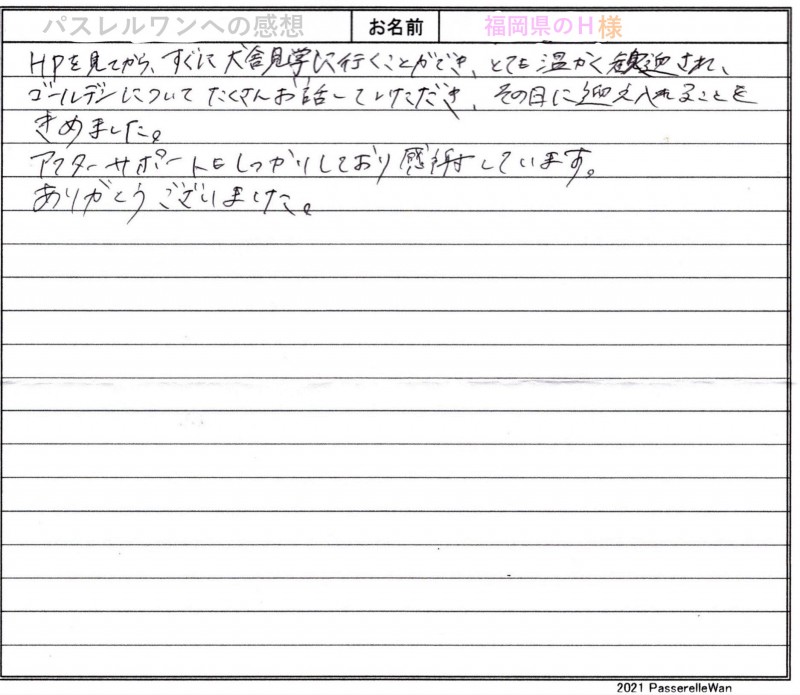 パスレルワンへの感想 お名前 福岡県のH様
HPを見てから、すぐに犬舎見学に行くことができ、とても温かく歓迎され、
ゴールデンについてたくさんお話していただき、その日に迎え入れることを
きめました。
アフターサポートもしっかりしており感謝しています。
ありがとうございました。
2021 PasserelleWan